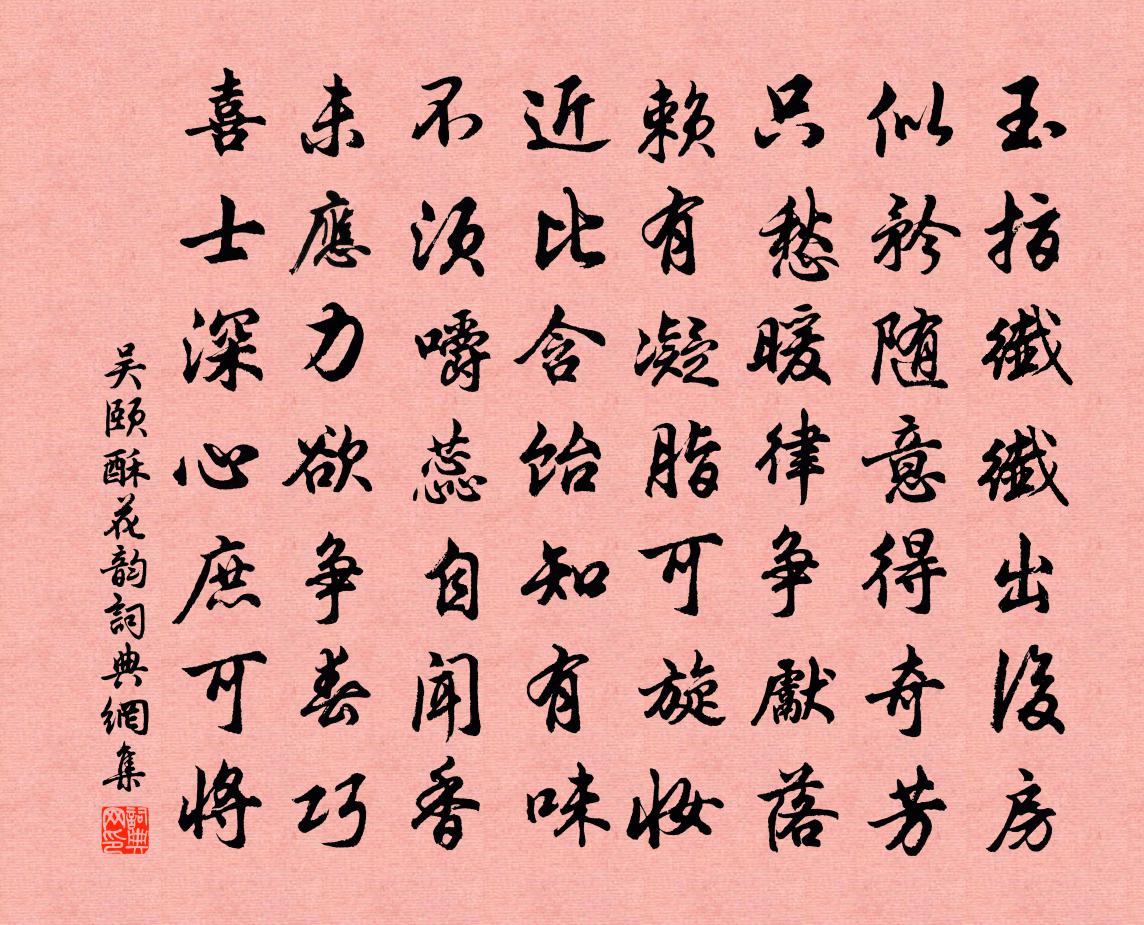 玉指纖纖出後房
似矜随意得奇芳
只愁暖律争獻落
賴有凝脂可旋妝
近比含飴知有味
不須嚼蕊自聞香
未應力欲争春巧
喜士深心庶可將
吴頤酥花韵詞典網集
詞典网印